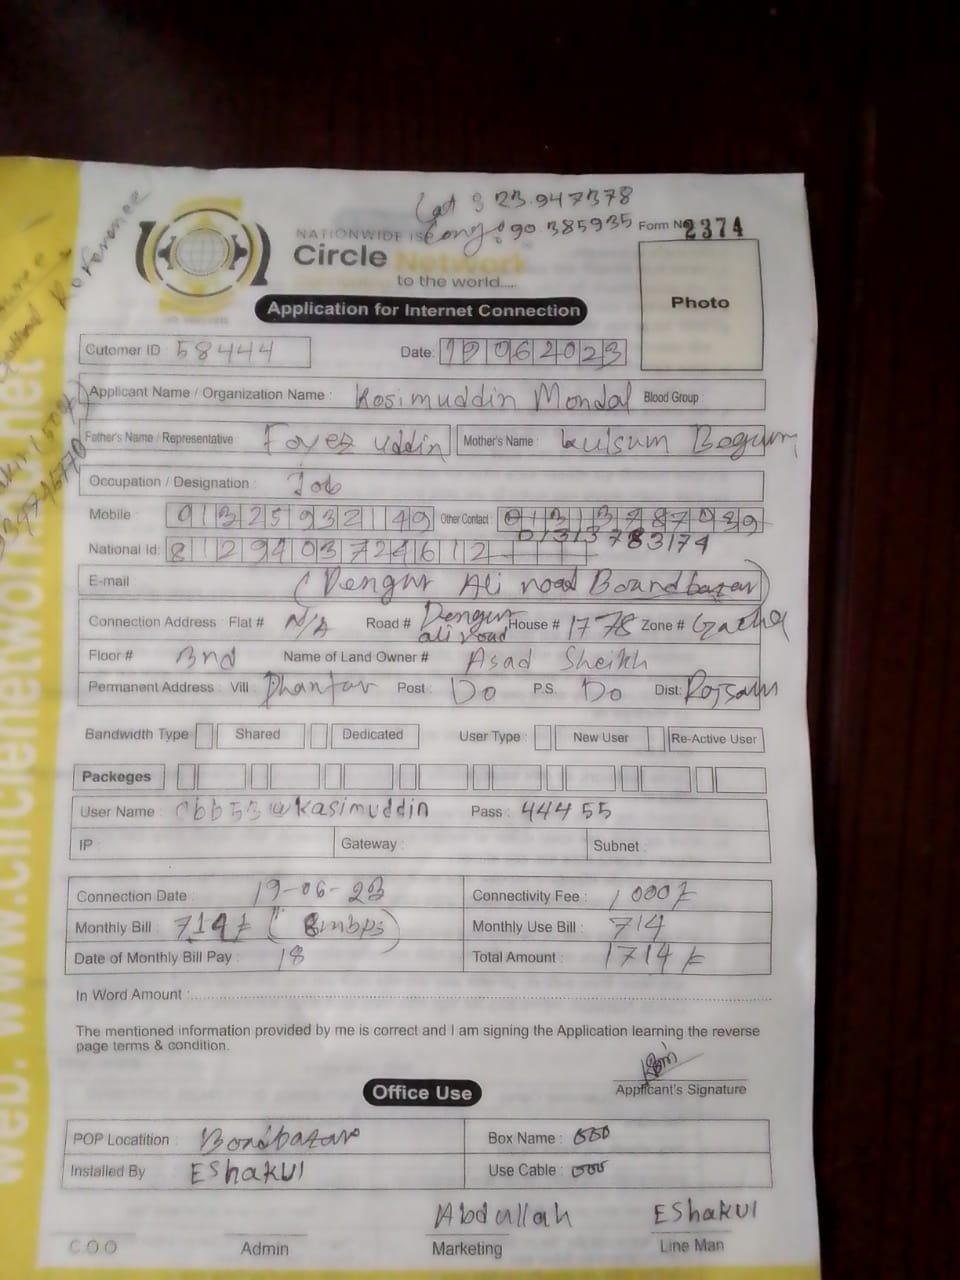 Lat : 23.947378
Long : 90.385935 Form No 2374
NATIONWIDE IS
Circle Network
to the world.....
Reference
Application for Internet Connection
Photo
Cutomer ID 58444 Date: 19062023
Applicant Name / Organization Name : Kosimuddin Mondal Blood Group :
Father's Name / Representative Foyez uddin Mother's Name : kulsum Begum
Occupation / Designation : Job
Mobile : 01325932149 Other Contact :
01313783174
National Id: 8129403724612
E-mail (Dengur Ali road Boardbazar)
Connection Address : Flat # N/A Road # Dengur ali road House # 1778 Zone # Gacha
Floor # 3nd Name of Land Owner # Asad Sheikh
Permanent Address : Vill Post : Do P.S. Do Dist:
Bandwidth Type Shared Dedicated User Type : New User Re-Active User
Packeges
User Name : cbb53@kasimuddin Pass : 44455
IP : Gateway : Subnet :
Connection Date : 19-06-23 Connectivity Fee : 1000/=
Monthly Bill : 714/= (8mbps) Monthly Use Bill : 714
Date of Monthly Bill Pay : 18 Total Amount : 1714/=
In Word Amount :
The mentioned information provided by me is correct and I am signing the Application learning the reverse
page terms & condition.
Applicant's Signature
Office Use
POP Locatition : Bordbazar Box Name :
Installed By EShakUl Use Cable :
Abdullah EShakUl
COO Admin Marketing Line Man
web: www.circlenetworkbd.net